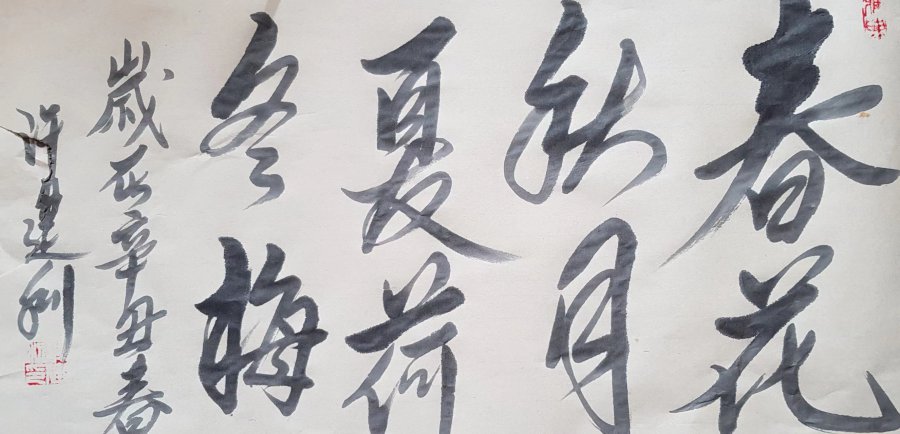 春花
秋月
夏荷
冬梅
歲在辛丑春
許建利